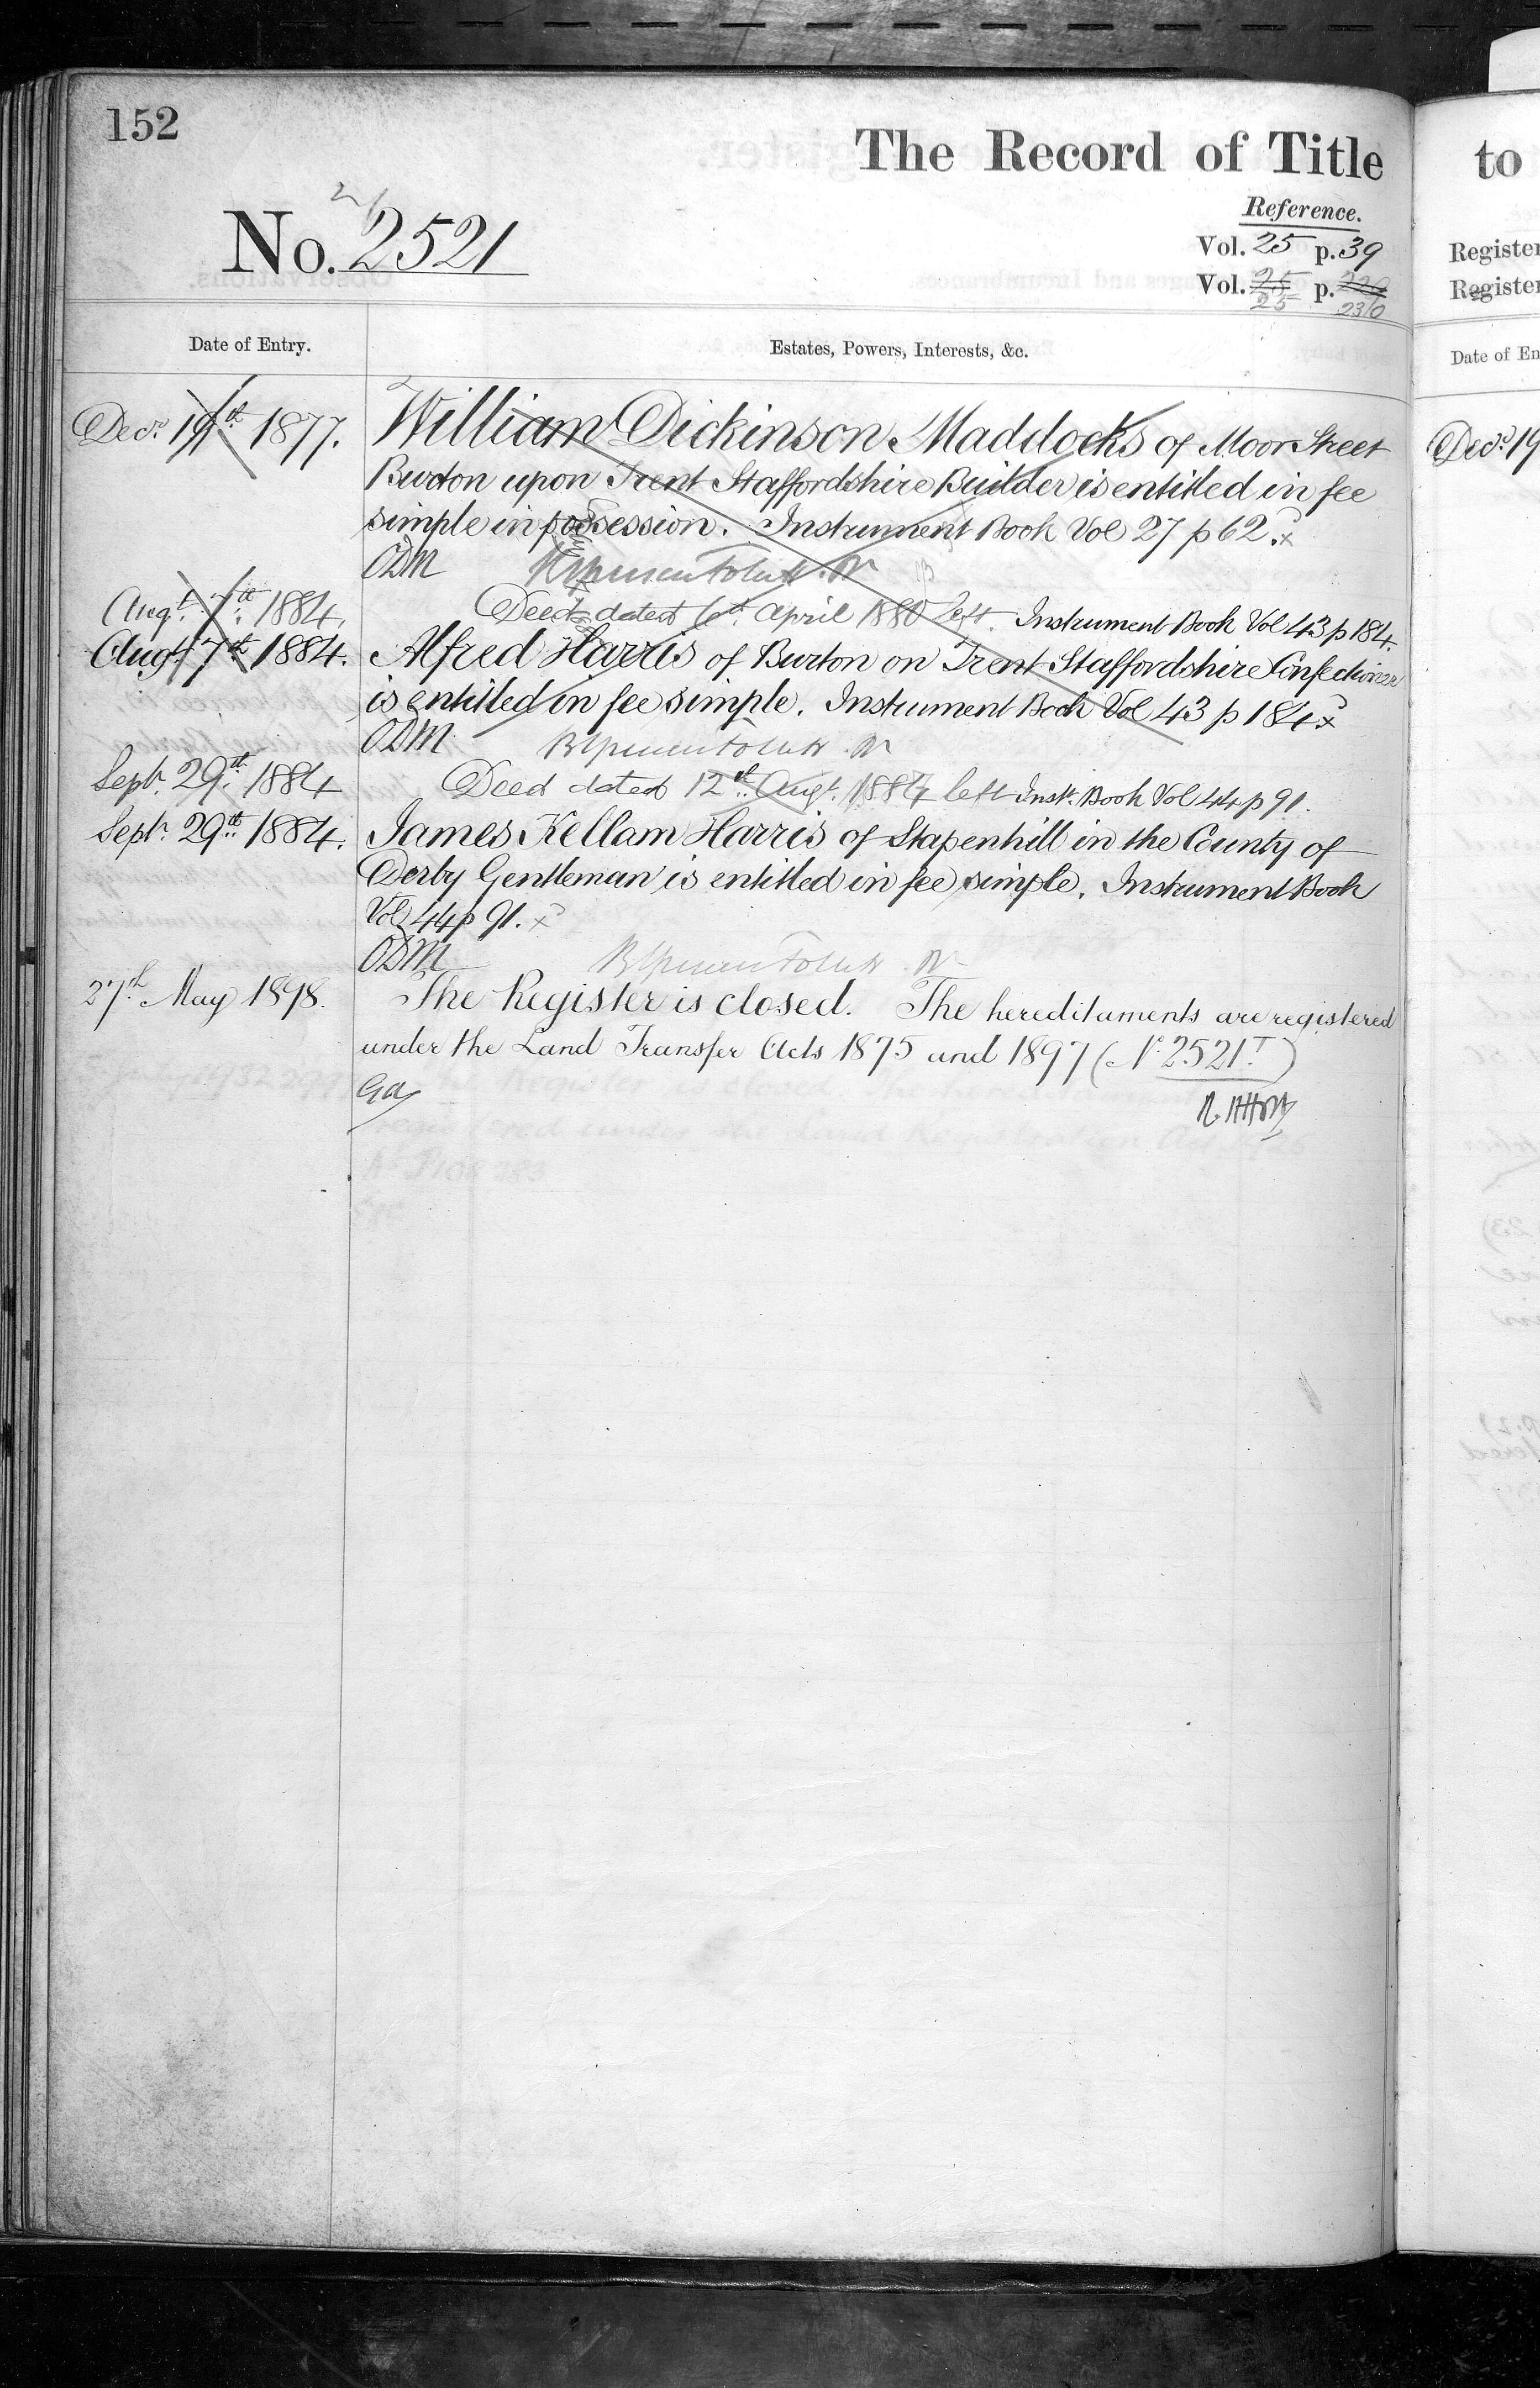 152
The Record of Title
to
Reference.
No. 2521
Vol. 25 p. 39
Vol. 25 p.
25 23/0
Register
Register
Date of Entry.
Estates, Powers, Interests, &c.
Date of En
Decr. 19th 1877. William Dickinson Maddocks of Moor Street
Decr. 19
Burton upon Trent Staffordshire Builder is entitled in fee
simple in possession. Instrument Book Vol 27 p 62.
ODM
Augt. 7th 1884. Deed dated 6th April 1880 left. Instrument Book Vol 43 p 184.
Augt. 7th 1884. Alfred Harris of Burton on Trent Staffordshire Confectioner
is entitled in fee simple. Instrument Book Vol 43 p 184
ODM
Septr. 29th 1884 Deed dated 12th Augt. 1884 left Inst. Book Vol 44 p 91.
Septr. 29th 1884. James Kellam Harris of Stapenhill in the County of
Derby Gentleman is entitled in fee simple. Instrument Book
Vol 44 p 91.
ODM
27th May 1898. The Register is closed. The hereditaments are registered
under the Land Transfer Acts 1875 and 1897 (No. 2521T)